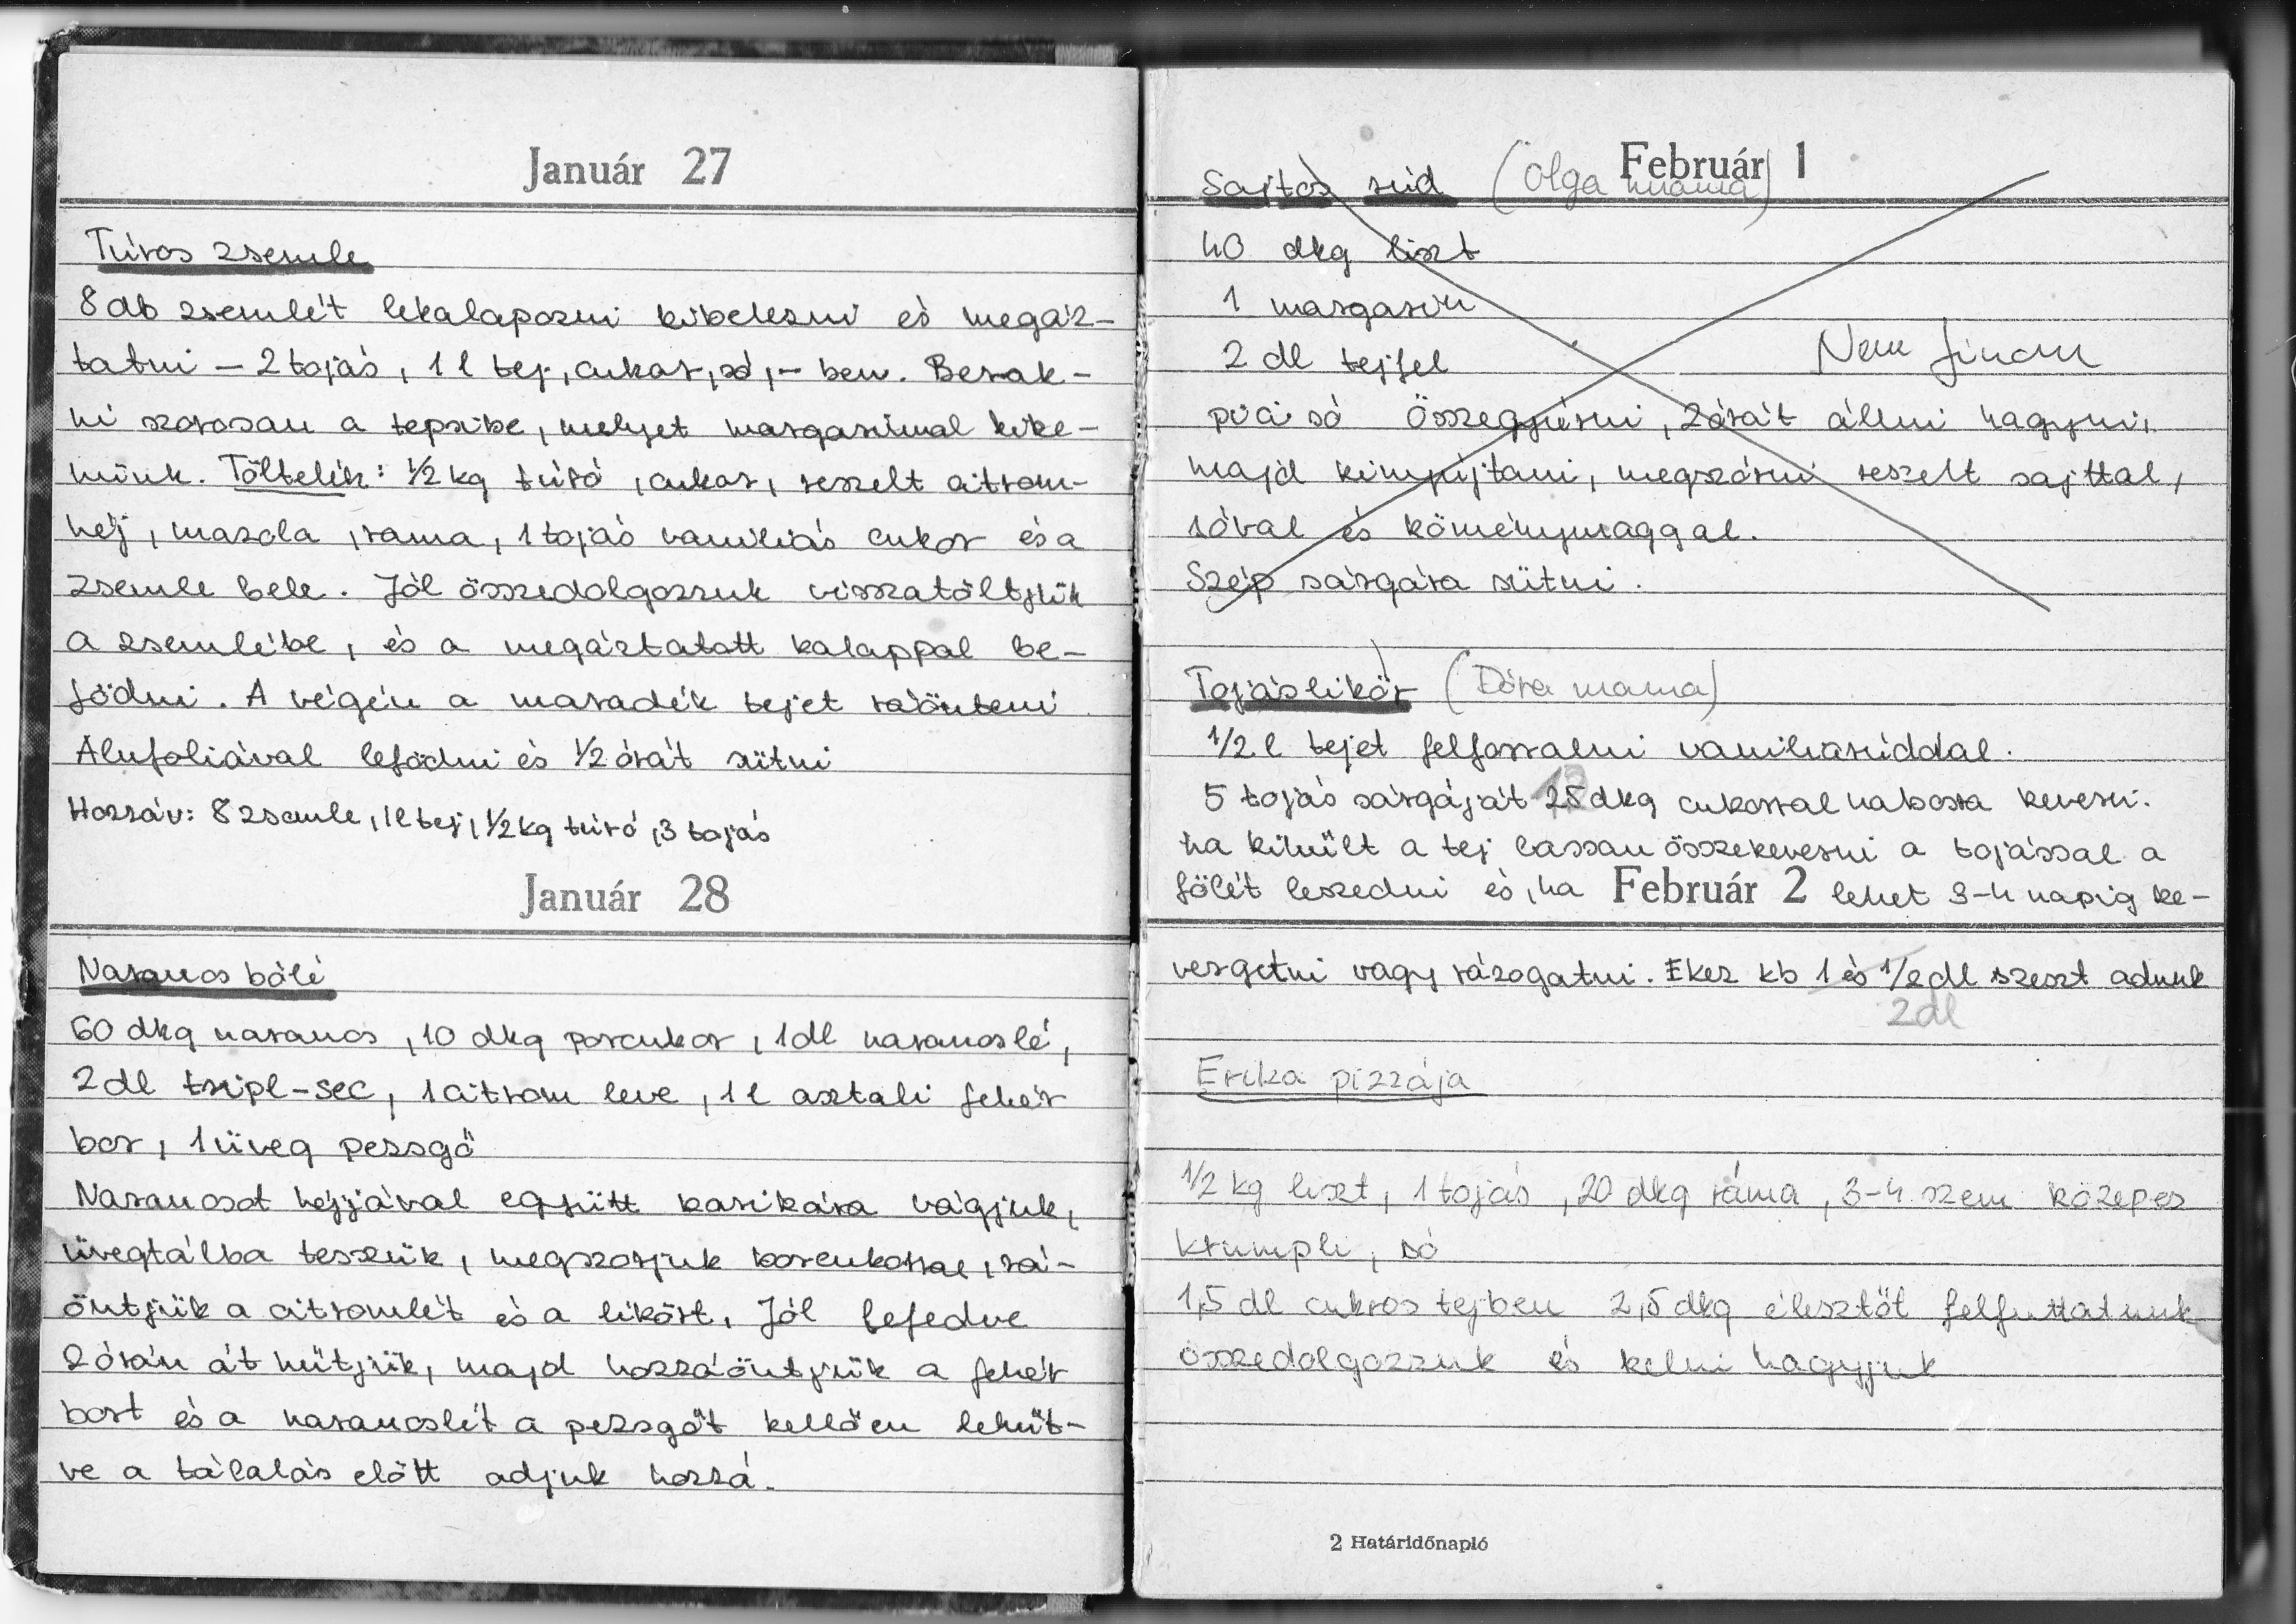 Január 27
Túros zsemle
8 db zsemlét lekalapozni kibelezni és megáz-
tatni – 2 tojás, 1 l tej, cukor, só, – ben. Berak-
ni szorosan a tepsibe, melyet margarinnal kike-
nünk. Töltelék: 1/2 kg túró, cukor, reszelt citrom-
héj, mazsola, rama, 1 tojás vaniliás cukor és a
zsemle bele. Jól összedolgozzuk visszatöltjük
a zsemlébe, és a megáztatott kalappal be-
födni. A végén a maradék tejet ráönteni
Alufoliával lefödni és 1/2 órát sütni
Hozzáv: 8 zsemle, 1l tej, 1/2 kg túró, 3 tojás
Január 28
Narancs bólé
60 dkg narancs, 10 dkg porcukor, 1dl narancslé,
2 dl tripl-sec, 1 citrom leve, 1 l asztali fehér
bor, 1 üveg pezsgő
Narancsot héjjával együtt karikára vágjuk,
üvegtálba teszzük, megszorjuk porcukorral, rá-
öntjük a citromlét és a likőrt. Jól lefedve
2 órán át hűtjük, majd hozzáöntjük a fehér
bort és a narancslét a pezsgőt kellően lehűt-
ve a tálalás előtt adjuk hozzá.
Február 1
Sajtos rúd (Olga mama)
40 dkg liszt
1 margarin
2 dl tejfel
Nem finom
pici só Összegyúrni, 2 órát állni hagyni,
majd kinyújtani, megszórni reszelt sajttal,
sóval és köménymaggal.
Szép sárgára sütni.
Tojáslikőr (Dóra mama)
1/2 l tejet felforralni vaniliarúddal.
5 tojás sárgáját 25 dkg cukorral habosra keverni.
ha kihűlt a tej lassan összekeverni a tojással a
fölét leszedni és, ha lehet 3-4 napig ke-
Február 2
vergetni vagy rázogatni. Ekez kb 1 és 1/2 dl szeszt adunk
2dl
Erika pizzája
1/2 kg liszt, 1 tojás, 20 dkg ráma, 3-4 szem közepes
krumpli, só
1,5 dl cukros tejben 2,5 dkg élesztőt felfuttatunk
összedolgozzuk és kelni hagyjuk
2 Határidőnapló